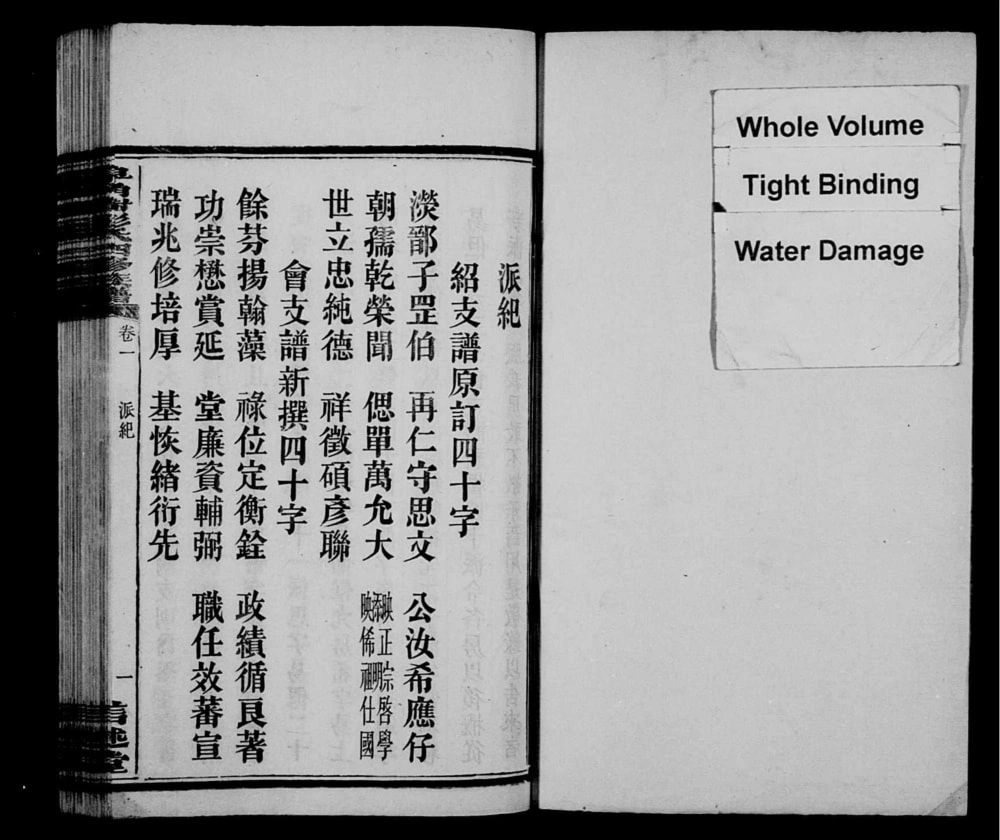 派紀
紹支譜原訂四十字
濙鄑子罡伯 再仁守思文 公汝希應仔
朝孺乾榮聞 偲單萬允大 映正宗啓學
映俙祖仕國
世立忠純德 祥徵碩彥聯
會支譜新撰四十字
餘芬揚翰藻 祿位定衡銓 政績循良著
功崇懋賞延 堂廉資輔弼 職任效蕃宣
瑞兆修培厚 基恢緒衍先
卷一 派紀 一
Whole Volume
Tight Binding
Water Damage